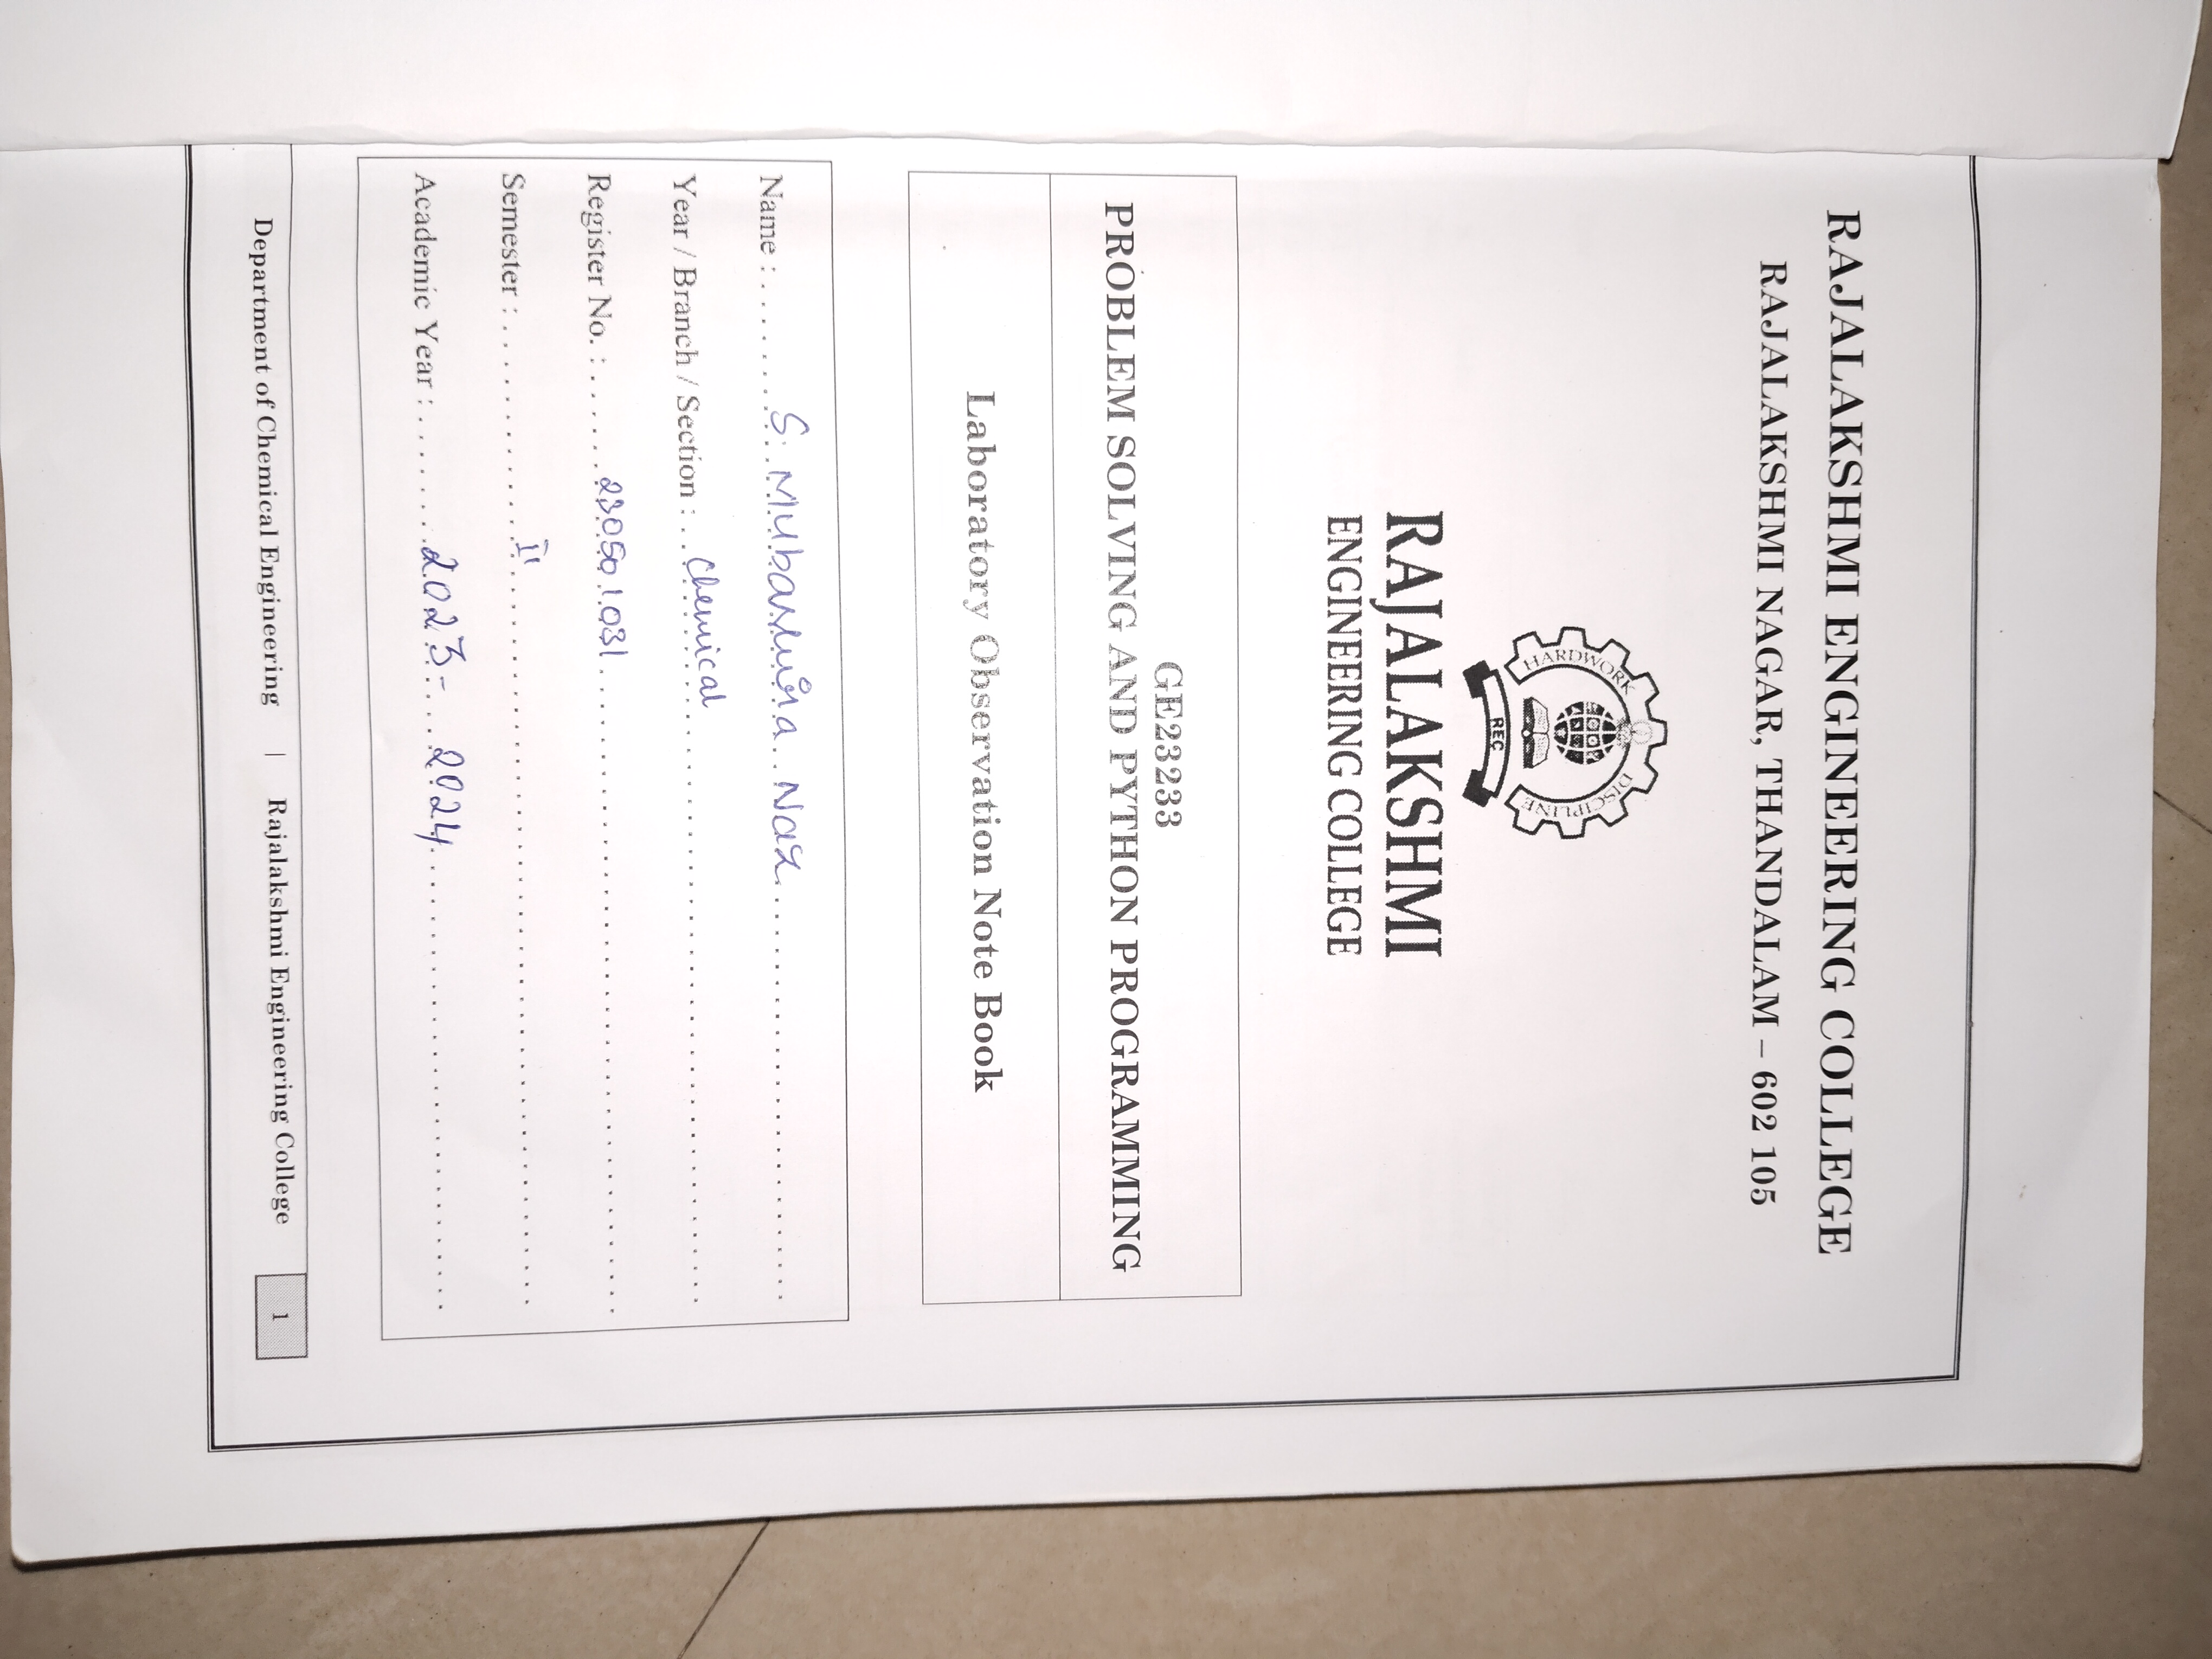 RAJALAKSHMI ENGINEERING COLLEGE
RAJALAKSHMI NAGAR, THANDALAM – 602 105
HARDWORK
DISCIPLINE
REC
RAJALAKSHMI
ENGINEERING COLLEGE
GE23233
PROBLEM SOLVING AND PYTHON PROGRAMMING
Laboratory Observation Note Book
Name : S. Mubashira Naz
Year / Branch / Section : Chemical
Register No. : 230501031
Semester : II
Academic Year : 2023 - 2024
Department of Chemical Engineering | Rajalakshmi Engineering College 1